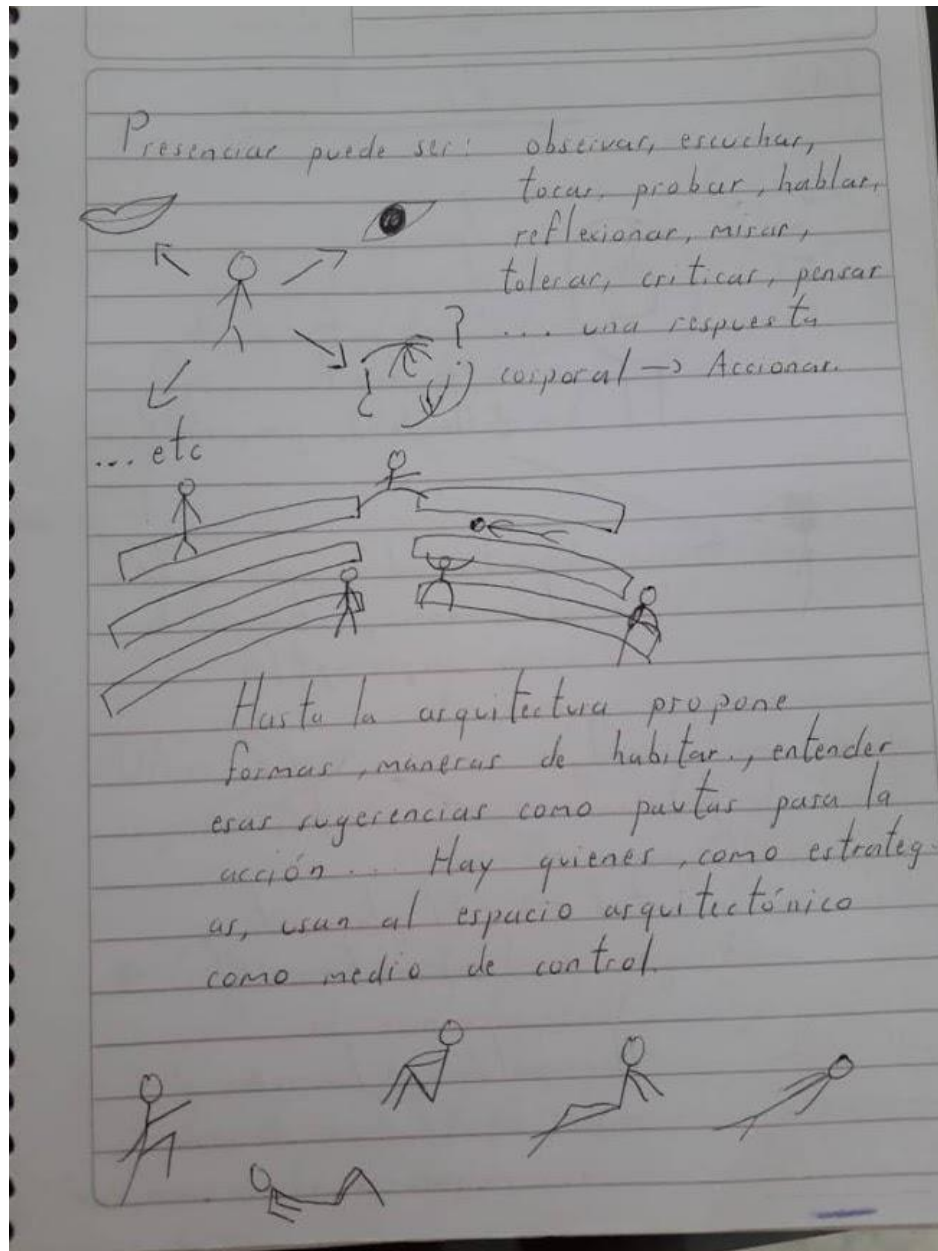 Presenciar puede ser: observar, escuchar,
tocar, probar, hablar,
reflexionar, mirar,
tolerar, criticar, pensar
... una respuesta
corporal → Accionar.
¿ ?
... etc
Hasta la arquitectura propone
formas, maneras de habitar., entender
esas sugerencias como pautas para la
acción... Hay quienes, como estrateg-
as, usan al espacio arquitectónico
como medio de control.